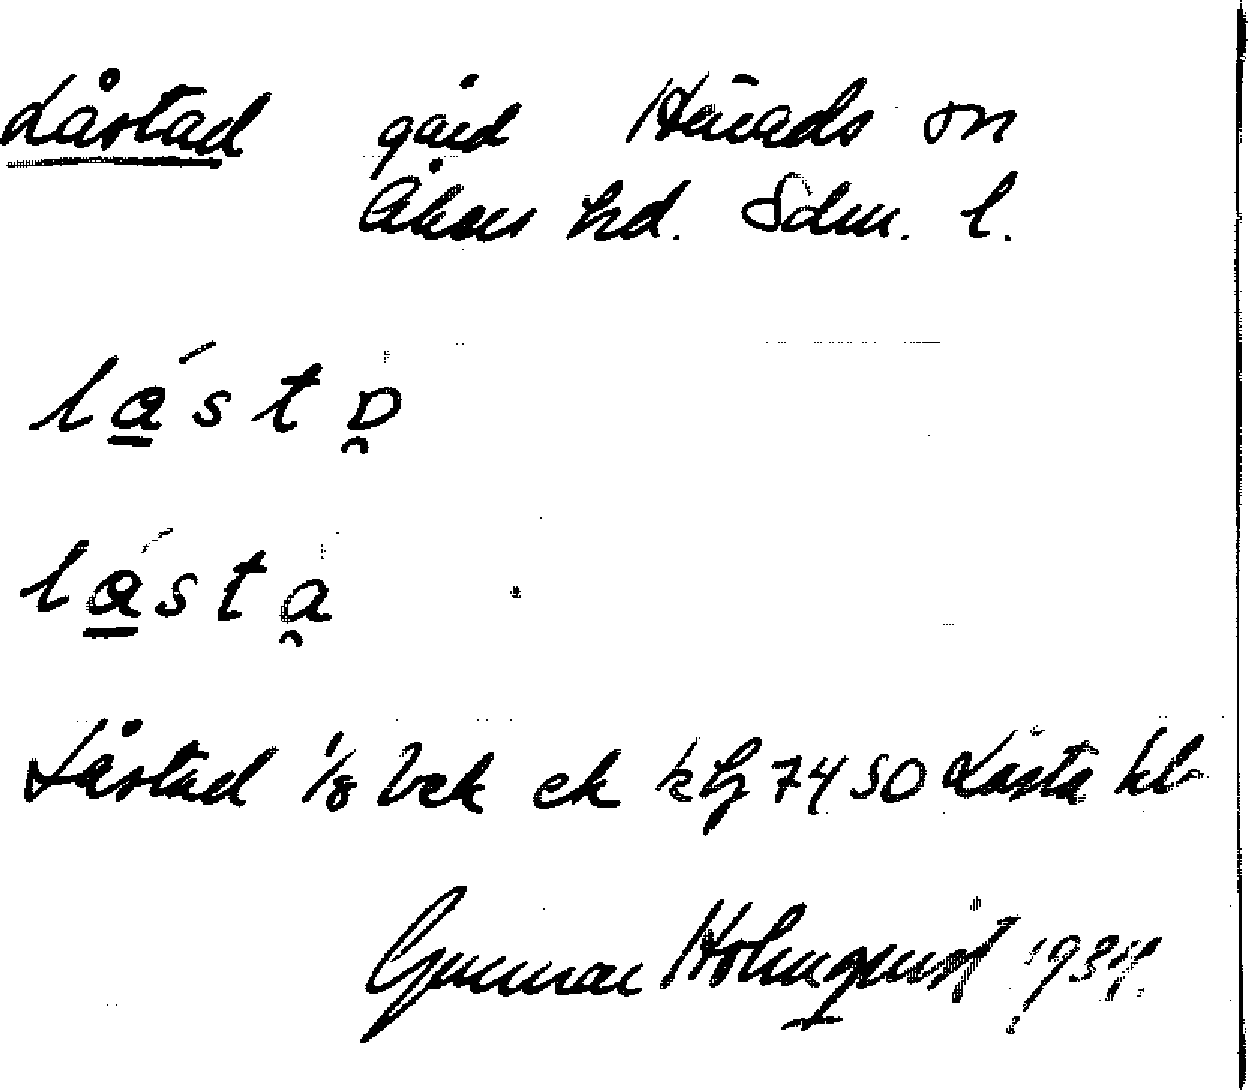 Låstad gård Härads sn
Åkers hd. Sdm. l.
la̲´sta̯
lå̲´sta̯
Låstad 1/8 bek ek 7450 Låsta kb
Gunnar Holmquist 1934.